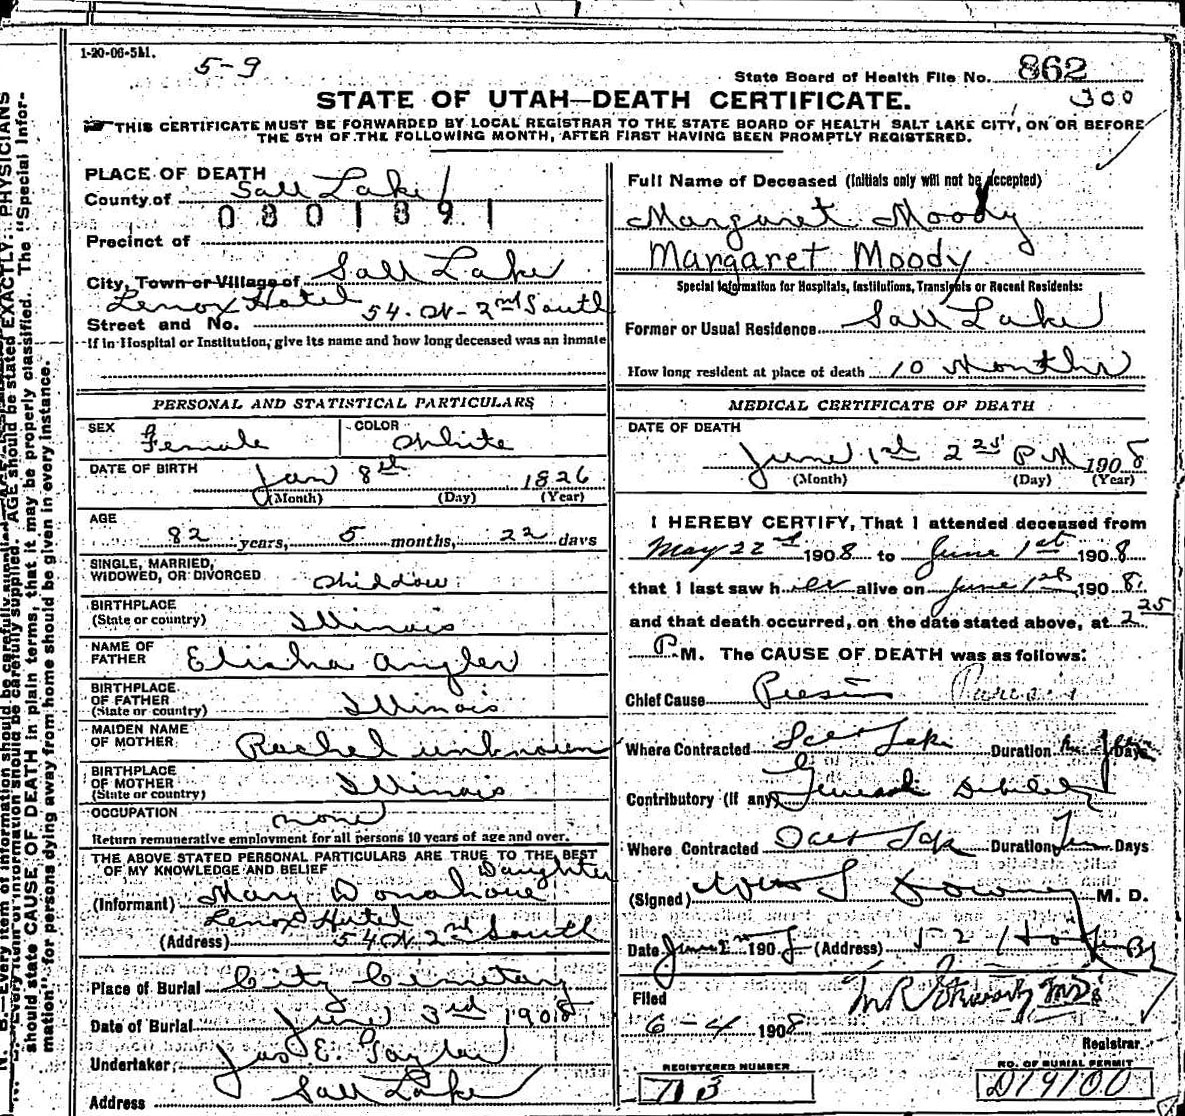 1-20-06-5M.
5-9
State Board of Health File No. 862
300
STATE OF UTAH—DEATH CERTIFICATE.
THIS CERTIFICATE MUST BE FORWARDED BY LOCAL REGISTRAR TO THE STATE BOARD OF HEALTH SALT LAKE CITY, ON OR BEFORE
THE 5TH OF THE FOLLOWING MONTH, AFTER FIRST HAVING BEEN PROMPTLY REGISTERED.
PLACE OF DEATH
County of Salt Lake
0801891
Precinct of
City, Town or Village of Salt Lake
Lenox Hotel 54. W- 2nd South
Street and No.
If in Hospital or Institution, give its name and how long deceased was an inmate
PERSONAL AND STATISTICAL PARTICULARS
SEX Female COLOR White
DATE OF BIRTH Jan 8th 1826
(Month) (Day) (Year)
AGE
82 years, 5 months, 22 days
SINGLE, MARRIED,
WIDOWED, OR DIVORCED Widow
BIRTHPLACE
(State or country) Illinois
NAME OF
FATHER Elisha Angler
BIRTHPLACE
OF FATHER
(State or country) Illinois
MAIDEN NAME
OF MOTHER Rachel unknown
BIRTHPLACE
OF MOTHER
(State or country) Illinois
OCCUPATION none
Return remunerative employment for all persons 10 years of age and over.
THE ABOVE STATED PERSONAL PARTICULARS ARE TRUE TO THE BEST
OF MY KNOWLEDGE AND BELIEF Daughter
(Informant) Mary Donahoue
Lenox Hotel
(Address) 54 W. 2nd South
Place of Burial City Cemetery
Date of Burial June 3rd 1908
Undertaker Jos E. Taylor
Address Salt Lake
Full Name of Deceased (Initials only will not be accepted)
Margaret Moody
Margaret Moody
Special Information for Hospitals, Institutions, Transients or Recent Residents:
Former or Usual Residence Salt Lake
How long resident at place of death 10 Months
MEDICAL CERTIFICATE OF DEATH
DATE OF DEATH
June 1st 2 25 P M 1908
(Month) (Day) (Year)
I HEREBY CERTIFY, That I attended deceased from
May 22nd 1908 to June 1st 1908
that I last saw her alive on June 1st 1908.
and that death occurred, on the date stated above, at 2 25
P M. The CAUSE OF DEATH was as follows:
Chief Cause Paresis
Where Contracted Salt Lake Duration Days
Contributory (if any) General Debility
Where Contracted Salt Lake Duration Days
(Signed) Downey M. D.
Date June 1908 (Address) 52
Filed
6-4 1908
Registrar.
REGISTERED NUMBER
NO. OF BURIAL PERMIT
D19100
N. B.—Every item of information should be carefully supplied. AGE should be stated EXACTLY. PHYSICIANS
should state CAUSE OF DEATH in plain terms, that it may be properly classified. The "Special Infor-
mation" for persons dying away from home should be given in every instance.